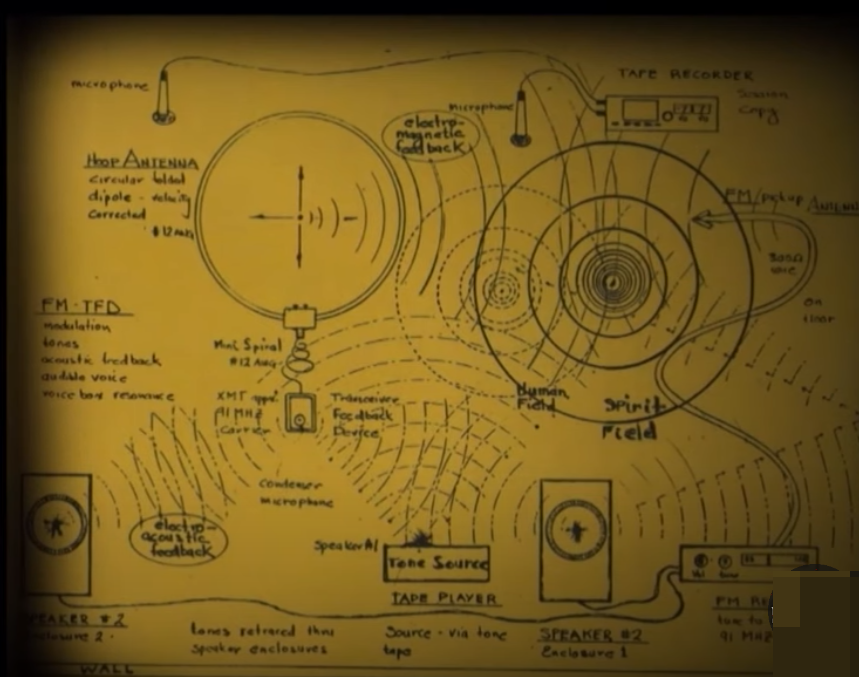 microphone
TAPE RECORDER
Session
Copy
microphone
electro-
magnetic
feedback
Hoop ANTENNA
circular folded
dipole - velocity
corrected
#12 AWG
FM/pickup ANTENNA
300Ω
wire
on
floor
FM-TFD
modulation
tones
acoustic feedback
audible voice
voice box resonance
Mini Spiral
#12 AWG
XMT appx.
91 MHz
Carrier
Transceive
Feedback
Device
Human
Field
Spirit
Field
Condenser
microphone
electro-
acoustic
feedback
Speaker #1
Tone Source
TAPE PLAYER
Vol
SPEAKER #2
Enclosure 2
tones retraced thru
speaker enclosures
Source - via tone
tape
SPEAKER #2
Enclosure 1
FM
tune to
91 MHz
WALL